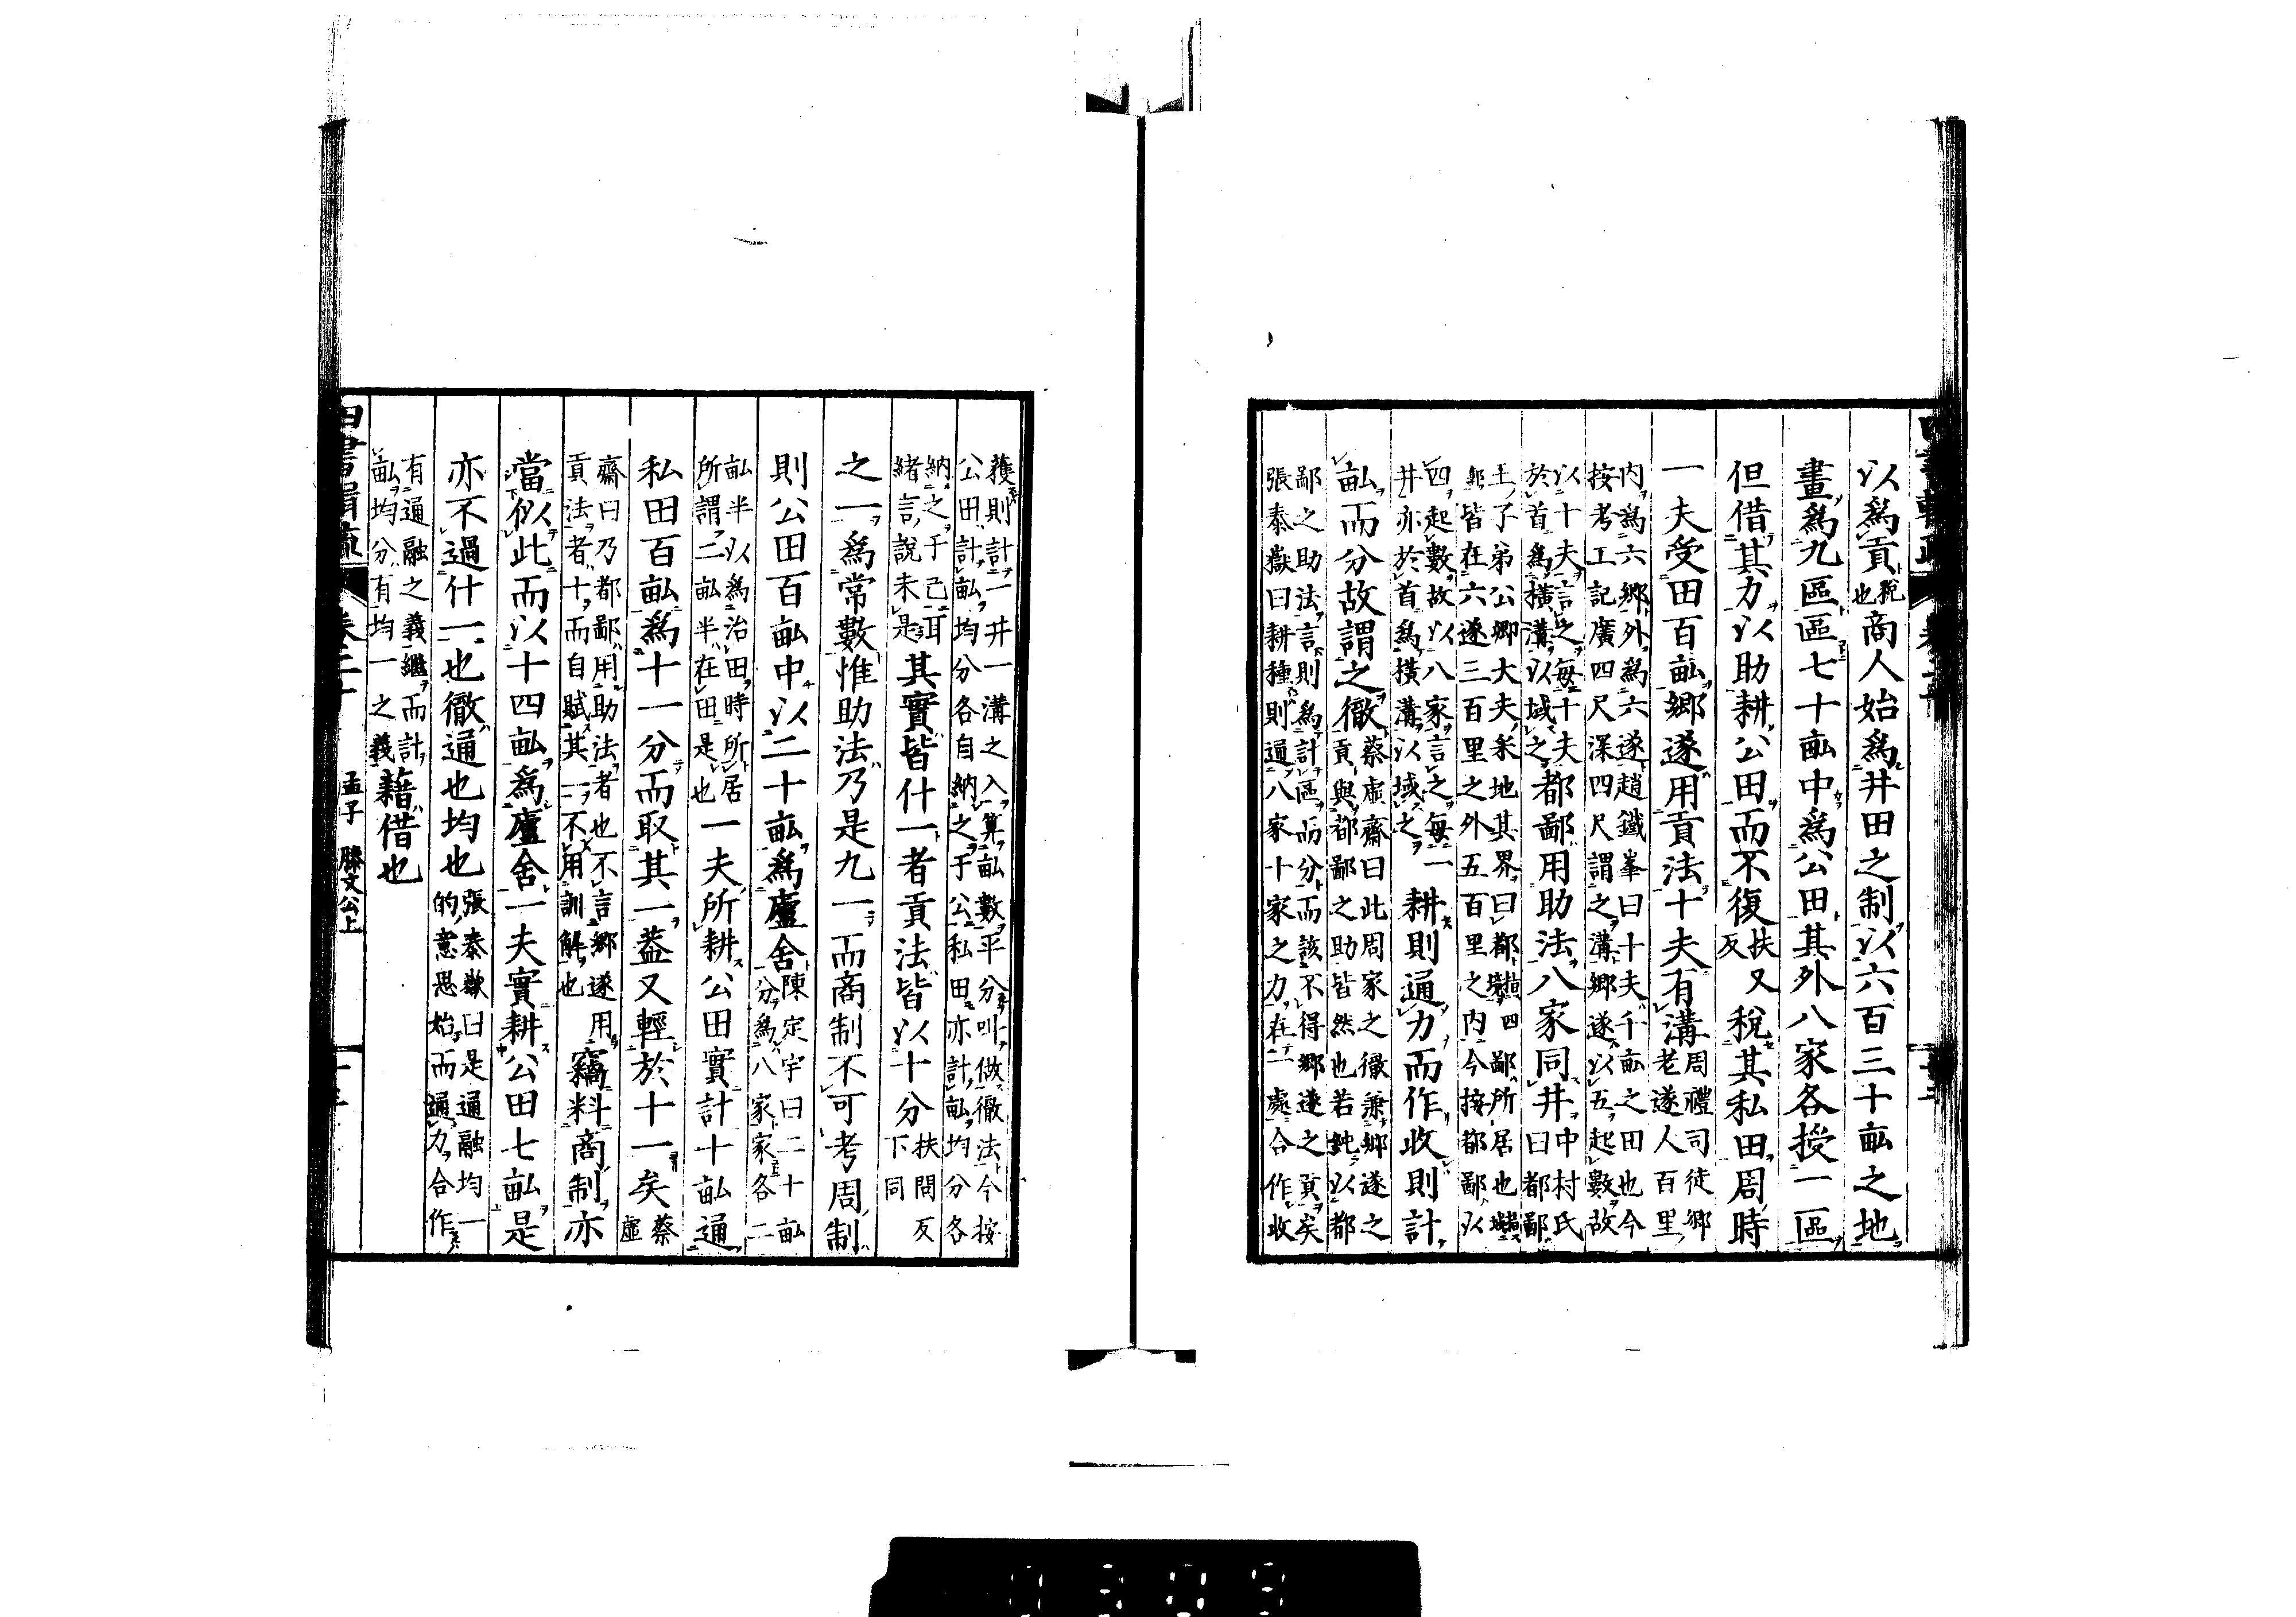 以爲貢稅也商人始爲井田之制以六百三十畝之地
畫爲九區區七十畝中爲公田其外八家各授一區
但借其力以助耕公田而不復扶又反稅其私田周時
一夫受田百畝鄉遂用貢法十夫有溝周禮司徒鄉老遂人百里
內爲六鄉外爲六遂趙鐵峯曰十夫千畝之田也今
按考工記廣四尺深四尺謂之溝鄉遂以五起數故
以十夫言之每十夫於首爲橫溝以域之都鄙用助法八家同井中村氏曰都鄙
王子弟公卿大夫采地其界曰都四鄙所居也
皆在六遂三百里之外五百里之內今按都鄙以
四起數故以八家言之每一井亦於首爲橫溝以域之耕則通力而作收則計
畝而分故謂之徹蔡虛齋曰此周家之徹兼鄉遂之貢與都鄙之助皆然也若純以都
鄙之助法言則爲計區而分而該不得鄉遂之貢矣
張泰嶽曰耕種則通八家十家之力在一處合作收
穫則計一井一溝之入算畝數平分叫做徹法今按
公田計畝均分各自納之于公私田亦計畝均分各
納之于己耳緒言說未是其實皆什一者貢法皆以十分扶問反下同
之一爲常數惟助法乃是九一而商制不可考周制
則公田百畝中以二十畝爲廬舍陳定宇曰二十畝分爲八家家各二
畝半以爲治田時所居所謂二畝半在田是也一夫所耕公田實計十畝通
私田百畝爲十一分而取其一蓋又輕於十一矣蔡虛
齋曰乃都鄙用助法者也不言鄉遂用貢法者十而自賦其一不用訓解也竊料商制亦
當似此而以十四畝爲廬舍一夫實耕公田七畝是
亦不過什一也徹通也均也張泰嶽曰是通融均一的意思始而通力合作
有通融之義繼而計畝均分有均一之義藉借也
孟子 滕文公上